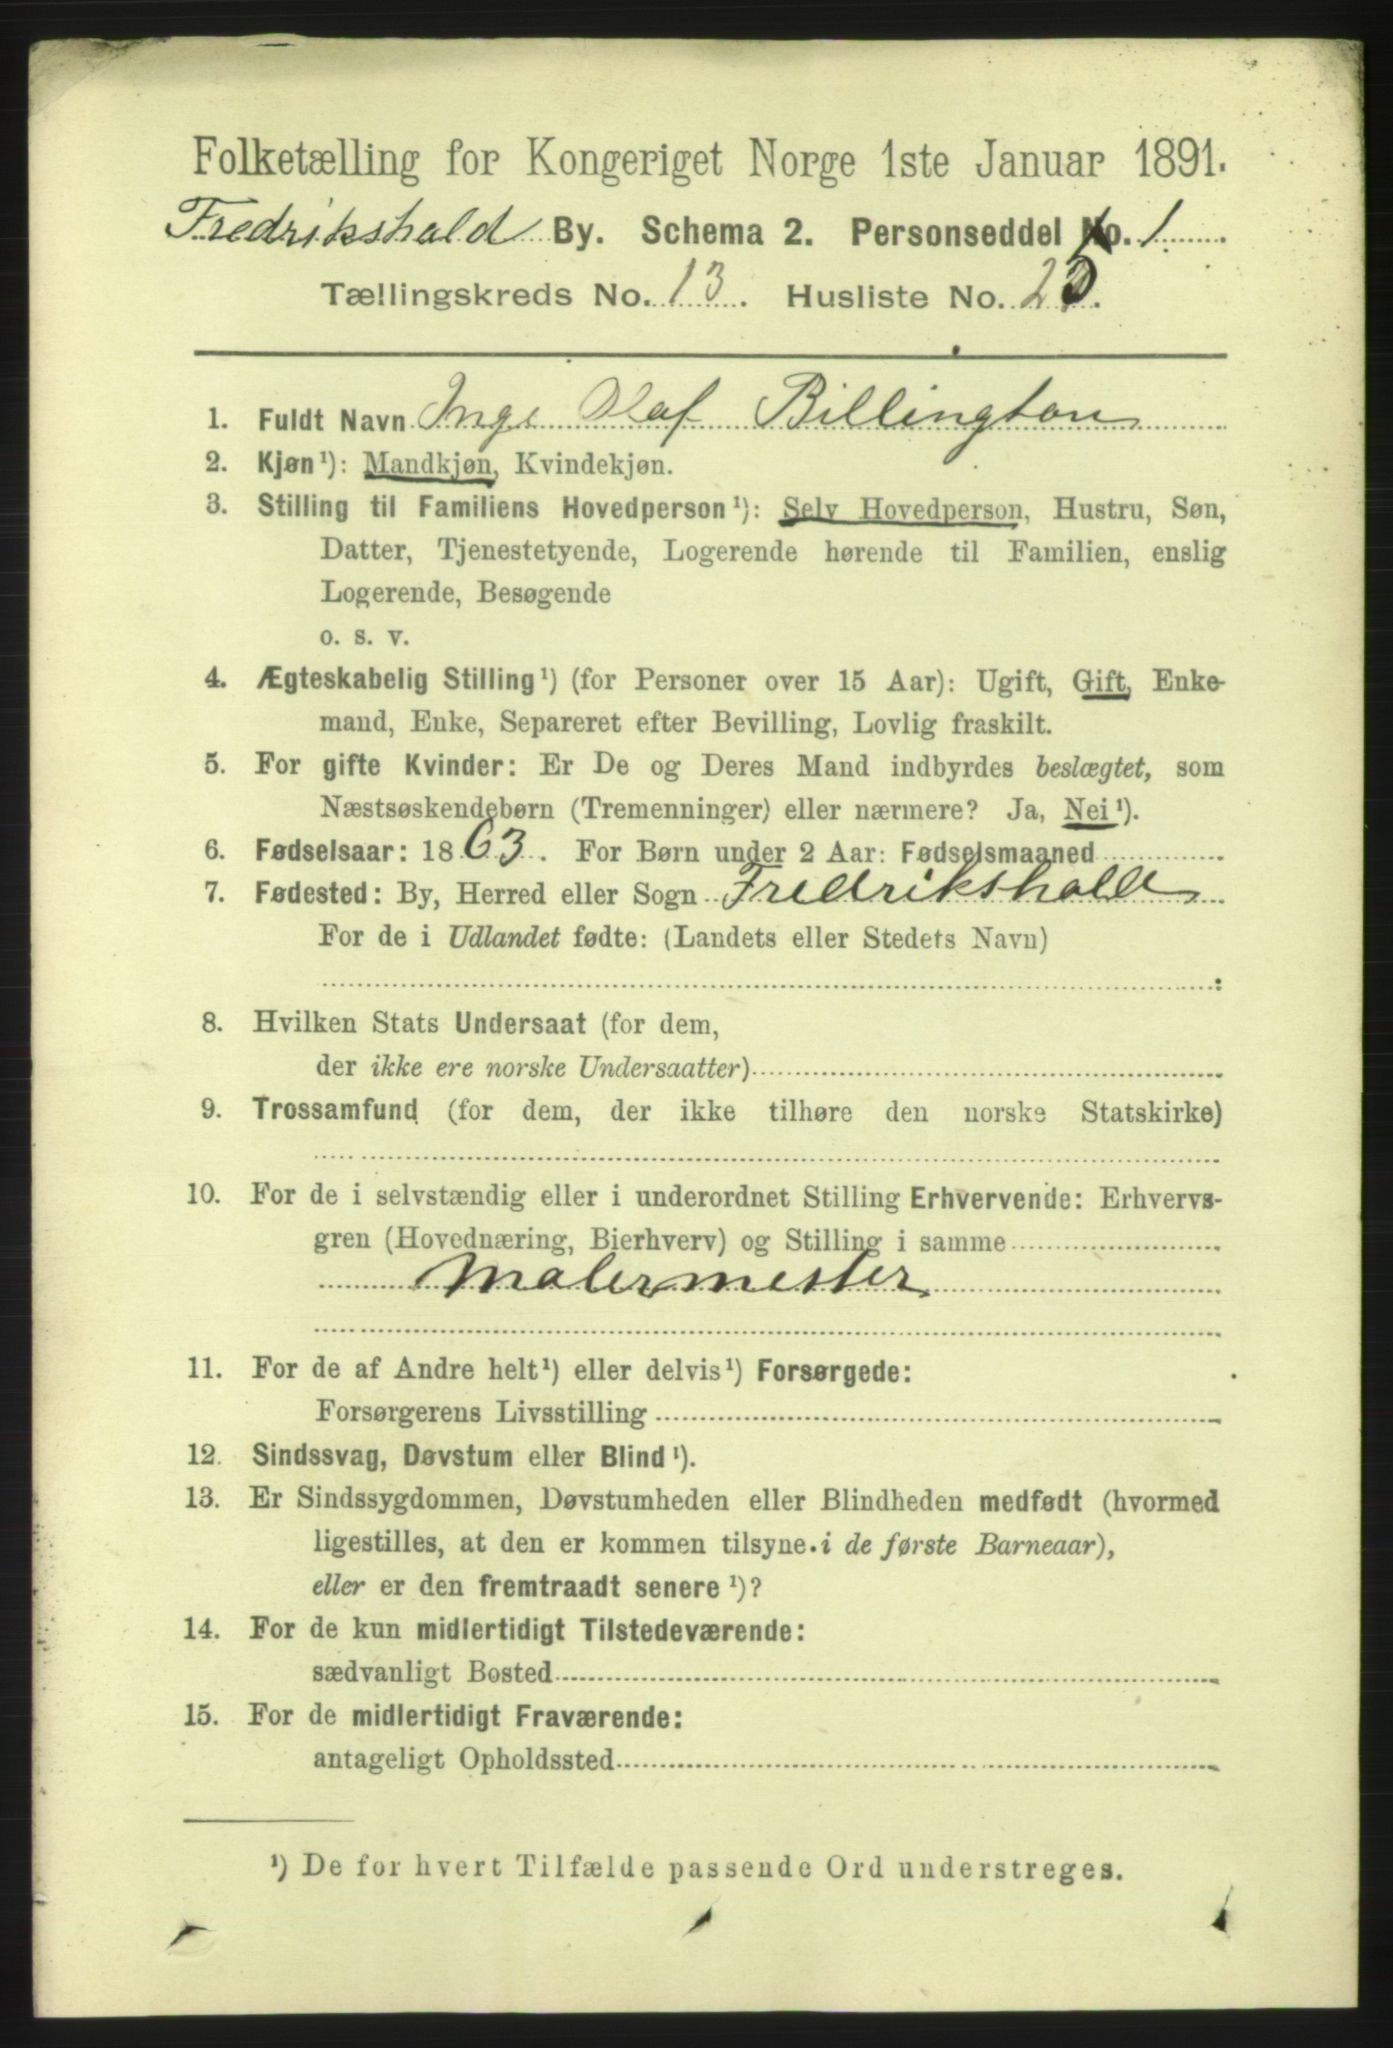 Folketælling for Kongeriget Norge 1ste Januar 1891.
Fredrikshald By. Schema 2. Personseddel No. 1
Tællingskreds No. 13. Husliste No. 25.
1. Fuldt Navn Inge Olaf Billington
2. Kjøn¹): Mandkjøn, Kvindekjøn.
3. Stilling til Familiens Hovedperson¹): Selv Hovedperson, Hustru, Søn,
Datter, Tjenestetyende, Logerende hørende til Familien, enslig
Logerende, Besøgende
o. s. v.
4. Ægteskabelig Stilling¹) (for Personer over 15 Aar): Ugift, Gift, Enke-
mand, Enke, Separeret efter Bevilling, Lovlig fraskilt.
5. For gifte Kvinder: Er De og Deres Mand indbyrdes beslægtet, som
Næstsøskendebørn (Tremenninger) eller nærmere? Ja, Nei¹).
6. Fødselsaar: 1863. For Børn under 2 Aar: Fødselsmaaned
7. Fødested: By, Herred eller Sogn Fredrikshald
For de i Udlandet fødte: (Landets eller Stedets Navn)
8. Hvilken Stats Undersaat (for dem,
der ikke ere norske Undersaatter)
9. Trossamfund (for dem, der ikke tilhøre den norske Statskirke)
10. For de i selvstændig eller i underordnet Stilling Erhvervende: Erhvervs-
gren (Hovednæring, Bierhverv) og Stilling i samme
Malermester
11. For de af Andre helt¹) eller delvis¹) Forsørgede:
Forsørgerens Livsstilling
12. Sindssvag, Døvstum eller Blind¹).
13. Er Sindssygdommen, Døvstumheden eller Blindheden medfødt (hvormed
ligestilles, at den er kommen tilsyne i de første Barneaar),
eller er den fremtraadt senere¹)?
14. For de kun midlertidigt Tilstedeværende:
sædvanligt Bosted
15. For de midlertidigt Fraværende:
antageligt Opholdssted
¹) De for hvert Tilfælde passende Ord understreges.